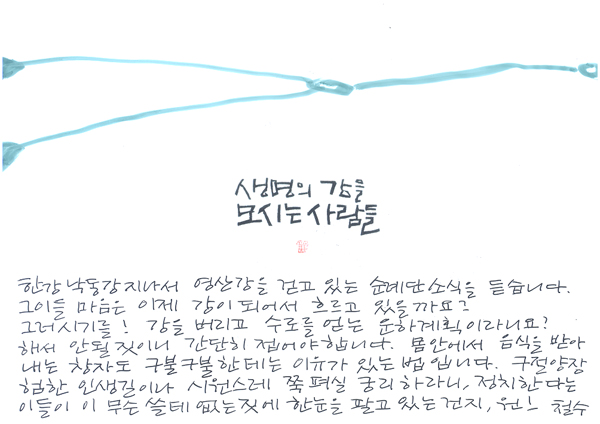 생명의 강을
모시는 사람들
한강 낙동강 지나서 영산강을 걷고 있는 순례단 소식을 듣습니다.
그이들 마음은 이제 강이 되어서 흐르고 있을까요?
그러시기를! 강을 버리고 수로를 얻는 운하계획이라니요?
해서 안될 짓이니 간단히 접어야 합니다. 몸안에서 음식을 받아
내는 창자도 구불구불한데는 이유가 있는 법입니다. 구절양장
험한 인생길이나 시원스레 쭉 펴실 궁리하라니, 정치한다는
이들이 이 무슨 쓸데 없는 짓에 한눈을 팔고 있는 건지, 원! 철수